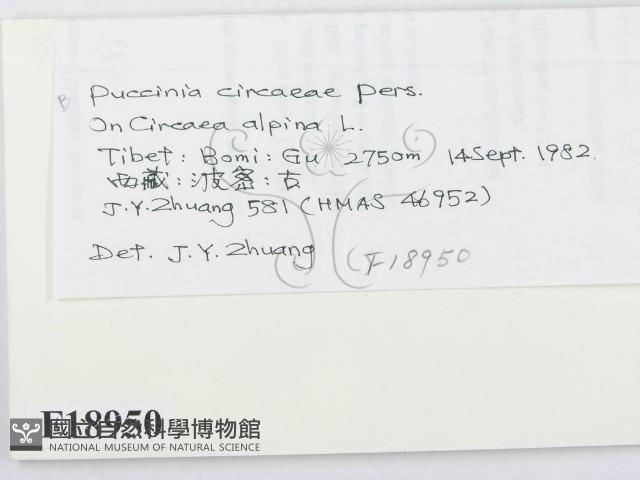 B
Puccinia circaeae Pers.
On Circaea alpina L.
Tibet: Bomi: Gu 2750m 14 Sept. 1982.
西藏:波密:古
J.Y.Zhuang 581 (HMAS 46952)
Det. J.Y.Zhuang
F18950
F18950
國立自然科學博物館
NATIONAL MUSEUM OF NATURAL SCIENCE